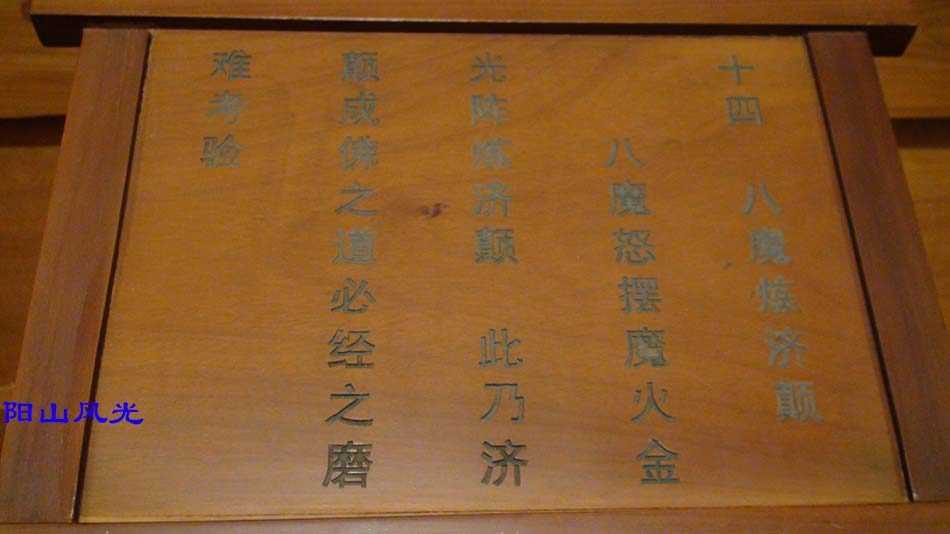 十四 八魔炼济颠
八魔怒摆魔火金
光阵炼济颠 此乃济
颠成佛之道必经之磨
难考验
阳山风光